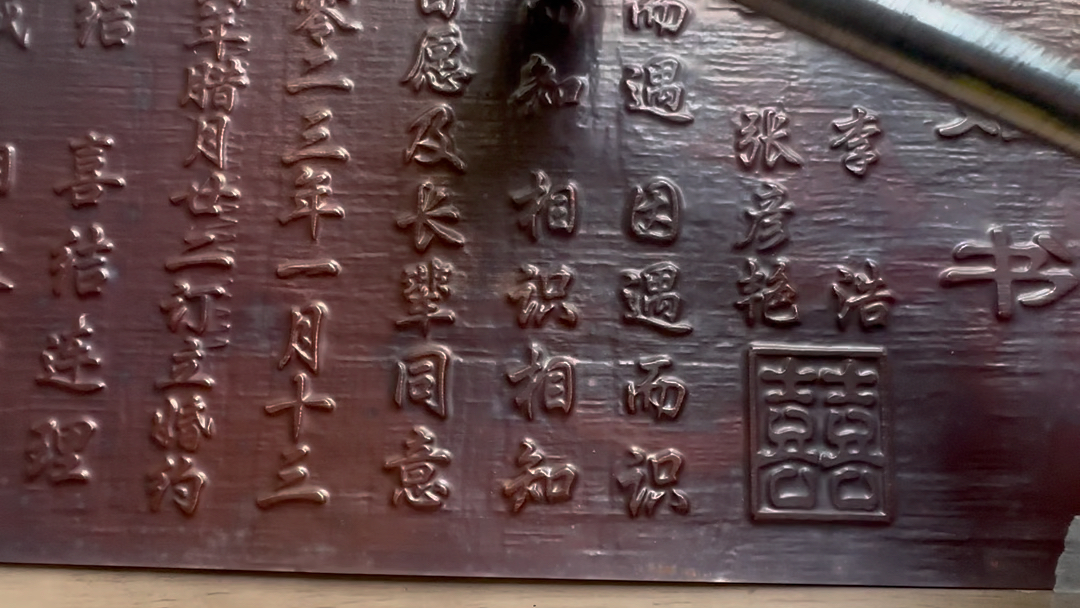 书
李浩
张彦艳
而遇因遇而识
知相识相知
愿及长辈同意
零二三年一月十三
年腊月廿二订立婚约
结喜结连理
囍